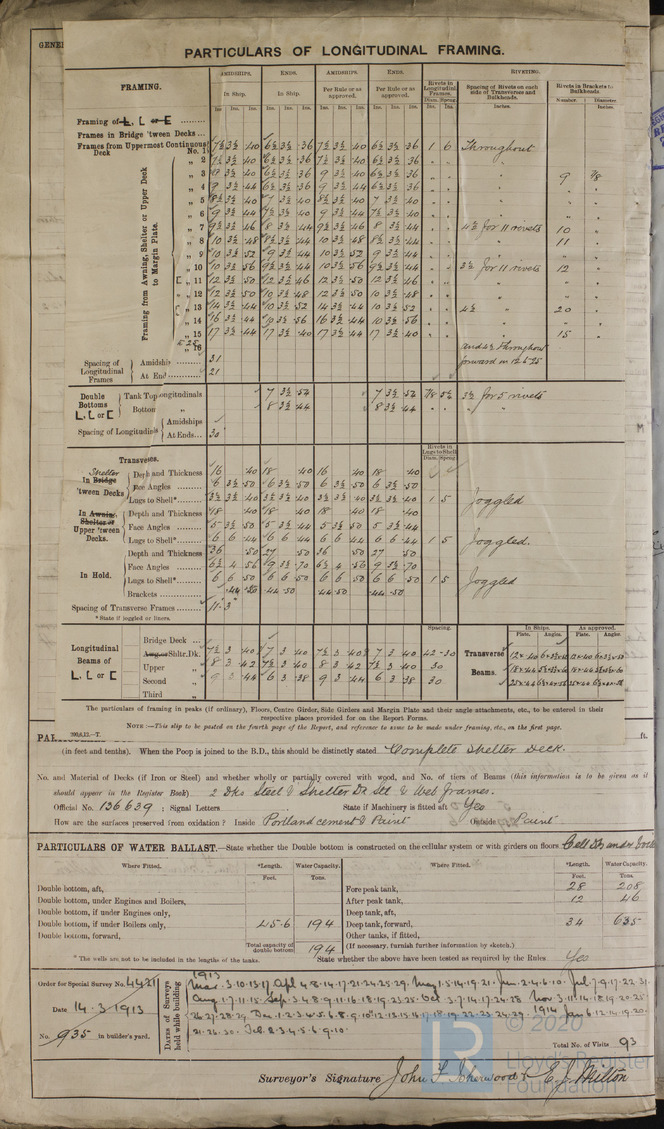 GENE
PARTICULARS OF LONGITUDINAL FRAMING.
FRAMING.
AMIDSHIPS. ENDS. AMIDSHIPS. ENDS. RIVETING.
In Ship. In Ship. Per Rule or as approved. Per Rule or as approved.
Rivets in Longitudinal Frames. Spacing of Rivets on each side of Transverse and Bulkheads. Rivets in Brackets to Bulkheads.
Ins. Ins. Ins. Ins. Ins. Ins. Ins. Ins. Ins. Ins. Ins. Ins. Diam. Spcng. Inches. Number. Diameter
Ins. Ins. Inches.
Framing of L, L or E
Frames in Bridge 'tween Decks ...
Frames from Uppermost Continuous Deck No. 1 7½ 3½ .40 6½ 3½ .36 7½ 3½ .40 6½ 3½ .36 1 6 Throughout
Framing from Awning, Shelter or Upper Deck to Margin Plate.
„ 2 7½ 3½ .40 6½ 3½ .36 7½ 3½ .40 6½ 3½ .36
„ 3 9 3½ .40 6½ 3½ .36 9 3½ .40 6½ 3½ .36 9 7/8
„ 4 9 3½ .44 6½ 3½ .36 9 3½ .44 6½ 3½ .36
„ 5 8½ 3½ .40 7 3½ .40 8½ 3½ .40 7 3½ .40
„ 6 9 3½ .44 7½ 3½ .40 9 3½ .44 7½ 3½ .40
„ 7 9½ 3½ .46 8 3½ .44 9½ 3½ .46 8 3½ .44 4½ for 11 rivets 10
„ 8 10 3½ .48 8½ 3½ .44 10 3½ .48 8½ 3½ .44 11
„ 9 10 3½ .52 9 3½ .44 10 3½ .52 9 3½ .44
„ 10 10 3½ .56 9½ 3½ .44 10 3½ .56 9½ 3½ .44 3½ for 11 rivets 12
[ „ 11 12 3½ .50 12 3½ .46 12 3½ .50 12 3½ .46
„ 12 12 3½ .50 10 3½ .48 12 3½ .50 10 3½ .48
[ „ 13 14 3½ .44 10 3½ .52 14 3½ .44 10 3½ .52 4½ 20
„ 14 16 3½ .44 10 3½ .56 16 3½ .44 10 3½ .56
„ 15 17 3½ .44 17 3½ .40 17 3½ .44 17 3½ .40 15
„ 16 and 4½ Throughout
Spacing of Longitudinal Frames Amidship 31 forward on
At End 21
Double Bottoms L, L or E Tank Top Longitudinals 7 3½ .52 7 3½ .52 7/8 5½ 3½ for 5 rivets
Bottom „ 8 3½ .44 8 3½ .44
Spacing of Longitudinals Amidships
At Ends... 30
Transverses. Rivets in Lugs to Shell
Diam. Spcng.
In Bridge Shelter 'tween Decks Depth and Thickness 16 .40 18 .40 16 .40 18 .40
Face Angles 6 3½ .50 6 3½ .50 6 3½ .50 6 3½ .50
Lugs to Shell* 3½ 3½ .40 3½ 3½ .40 3½ 3½ .40 3½ 3½ .40 1 5 Joggled
In Awning, Shelter or Upper 'tween Decks. Depth and Thickness 18 .40 18 .40 18 .40 18 .40
Face Angles 5 3½ .50 5 3½ .44 5 3½ .50 5 3½ .44
Lugs to Shell* 6 6 .44 6 6 .44 6 6 .44 6 6 .44 1 5 Joggled.
In Hold. Depth and Thickness 36 .50 27 .50 36 .50 27 .50
Face Angles 6½ 4 .56 9 3½ .70 6½ 4 .56 9 3½ .70
Lugs to Shell* 6 6 .50 6 6 .50 6 6 .50 6 6 .50 1 5 Joggled
Brackets .44 .50 .44 .50 .44 .50 .44 .50
Spacing of Transverse Frames 11.3
* State if joggled or liners.
Spacing. In Ships. As approved.
Plate. Angles. Plate. Angles.
Longitudinal Beams of L, L or E
Bridge Deck ...
Awg. or Shltr. Dk. 7½ 3 .40 7 3 .40 7½ 3 .40 7 3 .40 42-30 Transverse
Upper „ 8 3 .42 7½ 3 .40 8 3 .42 7½ 3 .40 30 Beams.
Second „ 9 3 .44 6 3 .38 9 3 .44 6 3 .38 30
Third „
The particulars of framing in peaks (if ordinary), Floors, Centre Girder, Side Girders and Margin Plate and their angle attachments, etc., to be entered in their respective places provided for on the Report Forms.
NOTE:—This slip to be posted on the fourth page of the Report, and reference to same to be made under framing, etc., on the first page.
PAR
ft.
(in feet and tenths). When the Poop is joined to the B.D., this should be distinctly stated Complete Shelter Deck.
No. and Material of Decks (if Iron or Steel) and whether wholly or partially covered with wood, and No. of tiers of Beams (this information is to be given as it
should appear in the Register Book) 2 Dks Steel & Shelter Dk Stl & Web frames.
Official No. 136639 ; Signal Letters State if Machinery is fitted aft Yes
How are the surfaces preserved from oxidation? Inside Portland cement & Paint Outside Paint
PARTICULARS OF WATER BALLAST.—State whether the Double bottom is constructed on the cellular system or with girders on floors. Cell Db under
Where Fitted. *Length. Water Capacity. Where Fitted. *Length. Water Capacity.
Feet. Tons. Feet. Tons.
Double bottom, aft, Fore peak tank, 28 208
Double bottom, under Engines and Boilers, After peak tank, 12 46
Double bottom, if under Engines only, Deep tank, aft,
Double bottom, if under Boilers only, 45.6 194 Deep tank, forward, 34 635
Double bottom, forward, Other tanks, if fitted,
Total capacity of double bottom 194 (If necessary, furnish further information by sketch.)
* The wells are not to be included in the lengths of the tanks. State whether the above have been tested as required by the Rules Yes
Order for Special Survey No. 4421
Date 14.3.1913
No. 935 in builder's yard.
Dates of Surveys held while building
1913
Mar. 3.10.13.17 Apl 4.8.14.17.21.24.25.29. May 1.5.14.19.21. Jun. 2.4.6.10. Jul. 7.9.17.22.31.
Aug 1.7.11.15. Sep. 3.4.8.9.11.16.18.19.23.25. Oct 3.7.14.17.24.28 Nov 3.11.14.18.19.20.25
26.27.28.29. Dec. 1.2.3.4.5.6.8.9.10.12.13.15.16.17.18.19.22.23.24.29. 1914 Jan 6.12.14.19.20.
21.26.30. Feb. 2.3.4.5.6.9.10.
Total No. of Visits 93
Surveyor's Signature John F Isherwood & E. J. Milton
© 2020
Lloyd's Register
Foundation